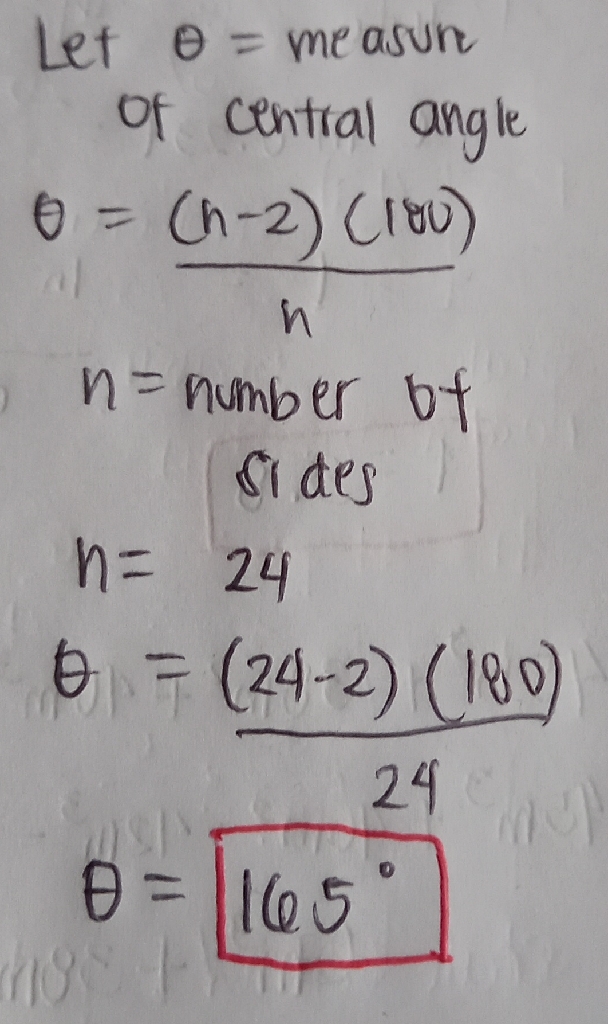 Let θ = measure
of central angle
θ = (n-2) (180)
n
n = number of
sides
n = 24
θ = (24-2) (180)
24
θ = 165°